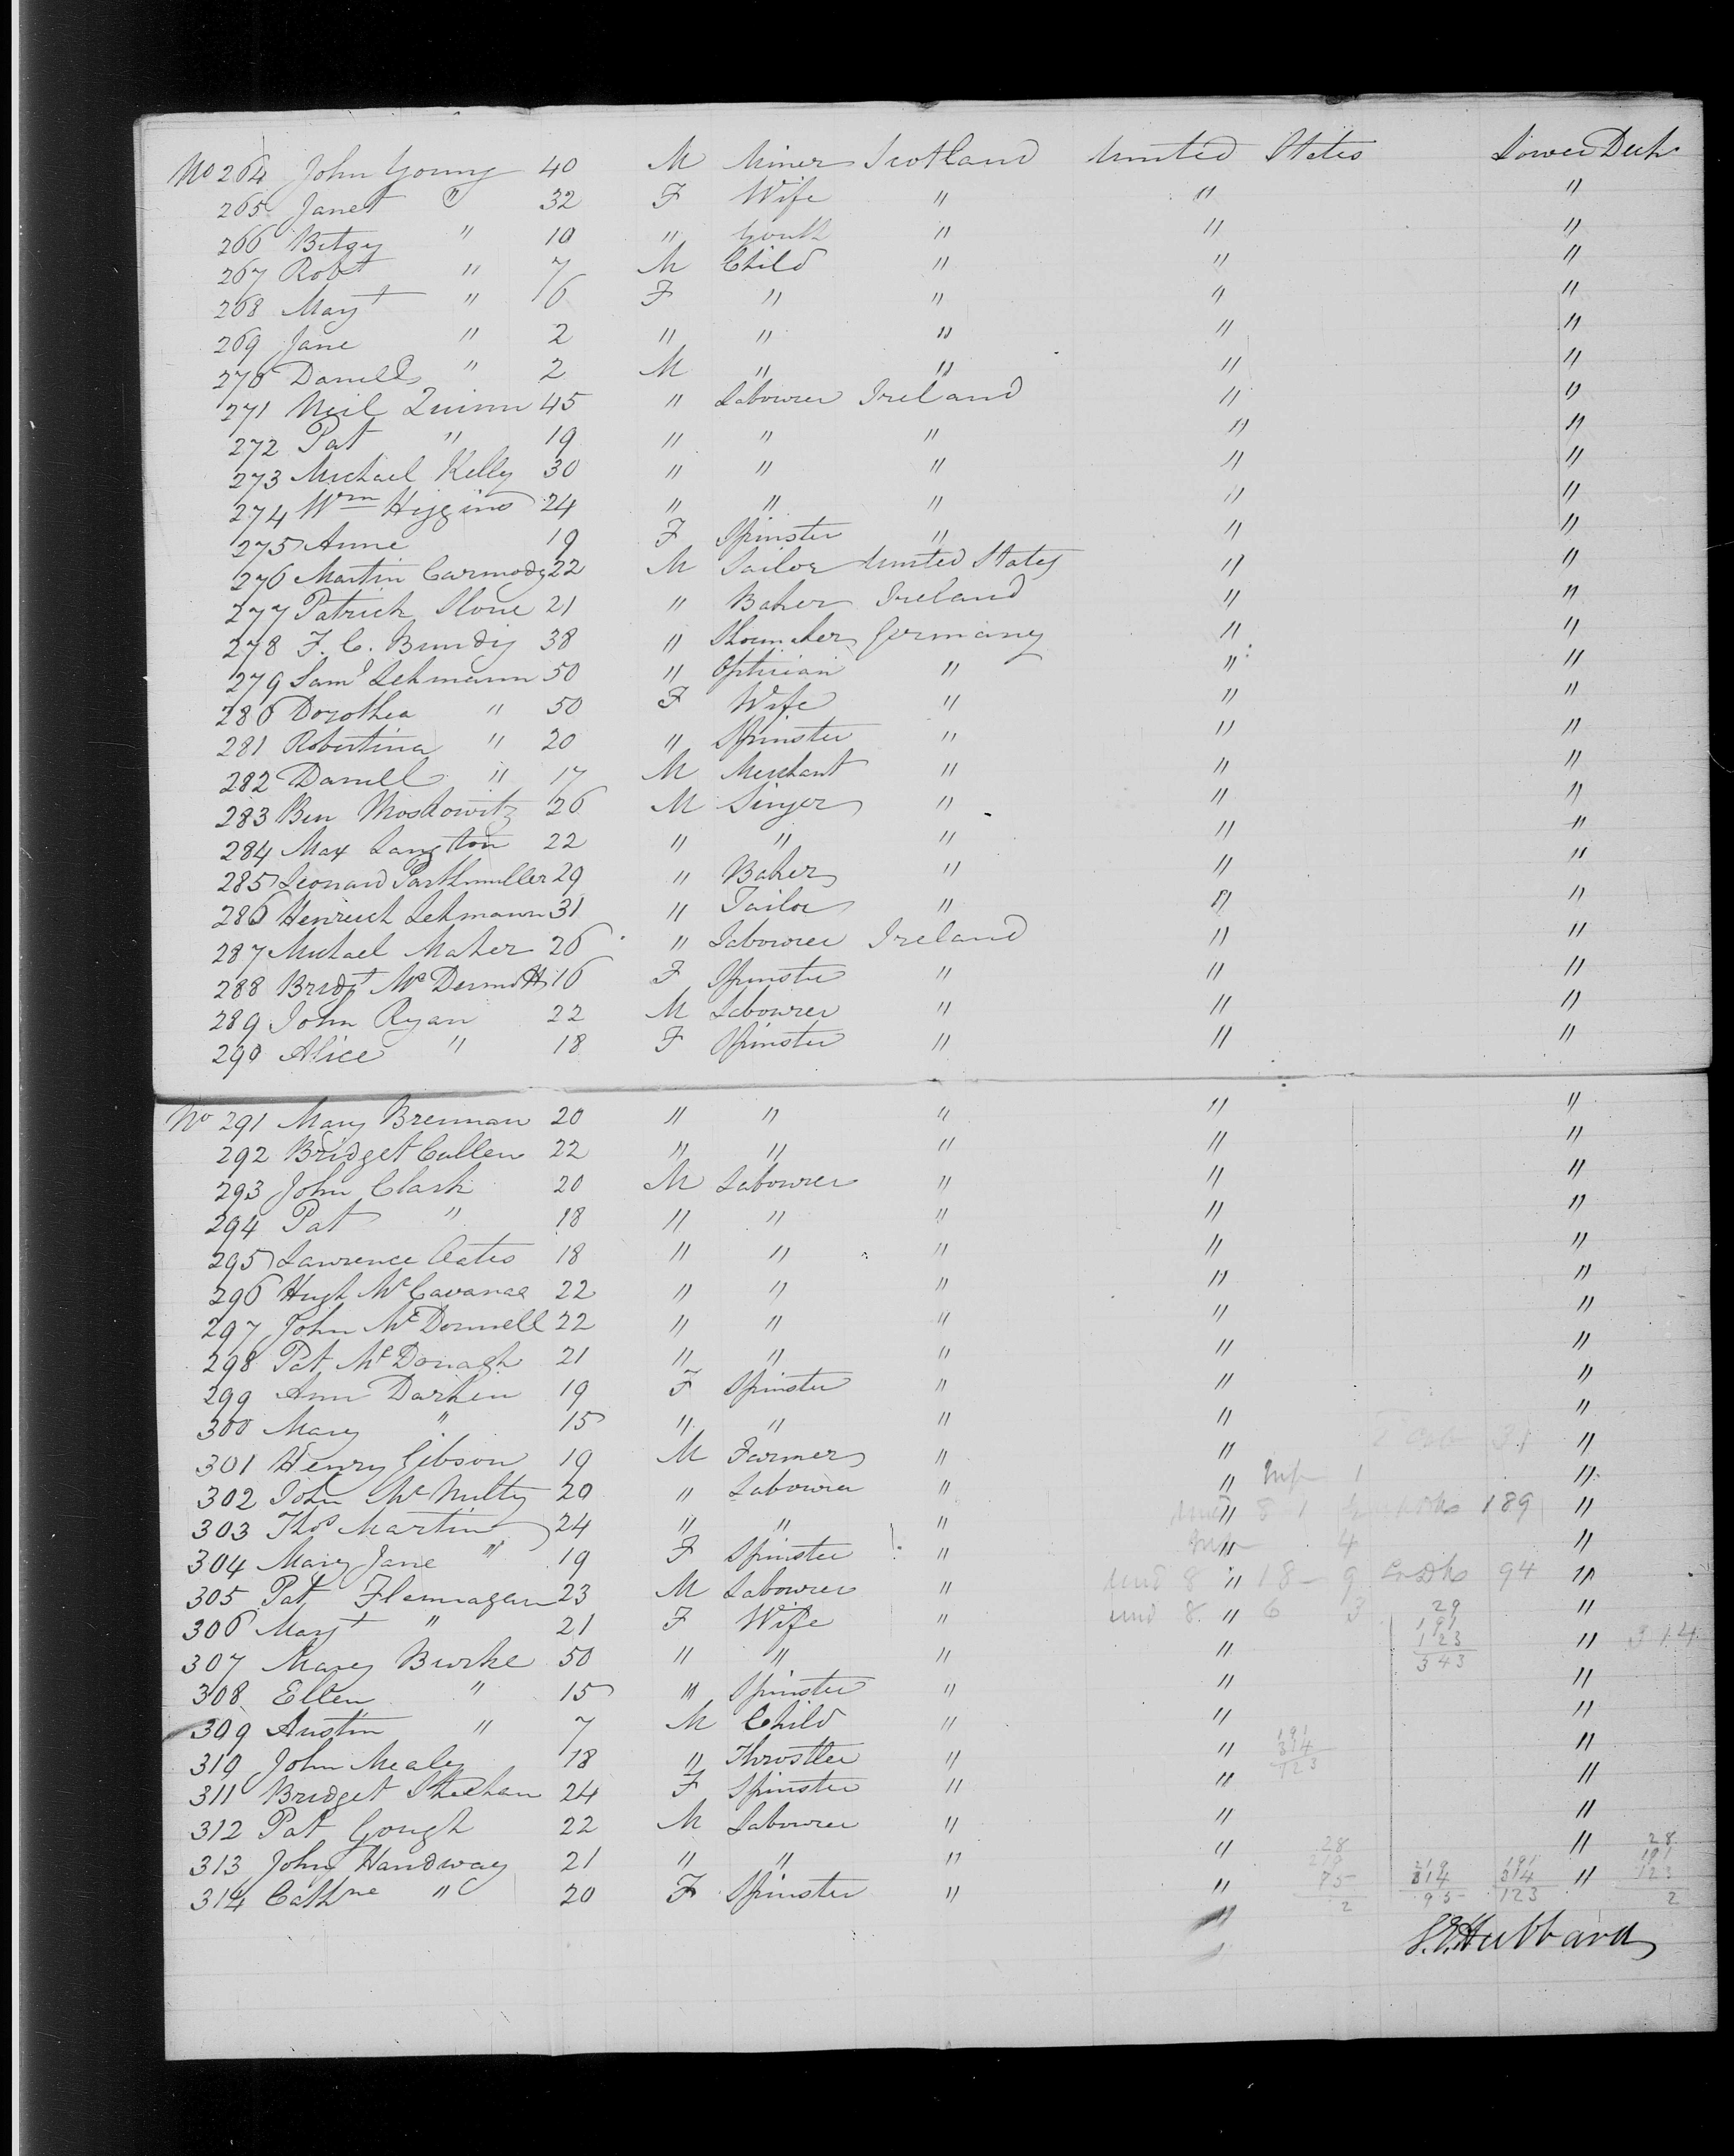 No 264 John Young 40 M Miner Scotland United States Lower Deck
265 Janet " 32 F Wife " " "
266 Betsy " 10 " Youth " " "
267 Robt " 7 M Child " " "
268 Margt " 6 F " " " "
269 Jane " 2 " " " " "
270 Daniel " 2 M " " " "
271 Neil Quinn 45 " Labourer Ireland " "
272 Pat " 19 " " " " "
273 Michael Kelly 30 " " " " "
274 Wm Higgins 24 " " " " "
275 Anne 19 F Spinster " " "
276 Martin Carmody 22 M Sailor United States " "
277 Patrick Slone 21 " Baker Ireland " "
278 F. C. Bundig 38 " Shoemaker Germany " "
279 Saml Lehmann 50 " Optician " " "
280 Dorothea " 50 F Wife " " "
281 Robertina " 20 " Spinster " " "
282 Daniel " 17 M Merchant " " "
283 Ben Moskowitz 26 M Singer " " "
284 Max Langton 22 " " " " "
285 Leonard Parthmuller 29 " Baker " " "
286 Henreich Lehmann 31 " Tailor " " "
287 Michael Maher 26 " Labourer Ireland " "
288 Bridgt McDermott 16 F Spinster " " "
289 John Ryan 22 M Labourer " " "
290 Alice " 18 F Spinster " " "
No 291 Mary Brennan 20 " " " " "
292 Bridget Cullen 22 " " " " "
293 John Clark 20 M Labourer " " "
294 Pat " 18 " " " " "
295 Lawrence Oates 18 " " " " "
296 Hugh McCavanae 22 " " " " "
297 John McDonnell 22 " " " " "
298 Pat McDonagh 21 " " " " "
299 Ann Darken 19 F Spinster " " "
300 Mary " 15 " " " " "
301 Henry Gibson 19 M Farmer " " 31 "
302 John McNulty 20 " Labourer " " 1 "
303 Thos Martin 24 " " " " 8 1 189 "
304 Mary Jane " 19 F Spinster " " 4 "
305 Pat Flennagan 23 M Labourer " und 8 " 18 9 94 "
306 Margt " 21 F Wife " und 8 " 6 3 29 "
191
307 Mary Burke 50 " " " " 123 " 314
343
308 Ellen " 15 " Spinster " " "
309 Austin " 7 M Child " " "
191
310 John Mealey 18 " Throstler " " 314 "
123
311 Bridget Sheehan 24 F Spinster " " "
312 Pat Gough 22 M Labourer " " "
313 John Handway 21 " " " " 28 " 28
219 191 191
314 Cathne " 20 F Spinster " " 95 314 314 " 123
2 95 123 2
"
S. E. Hubbard